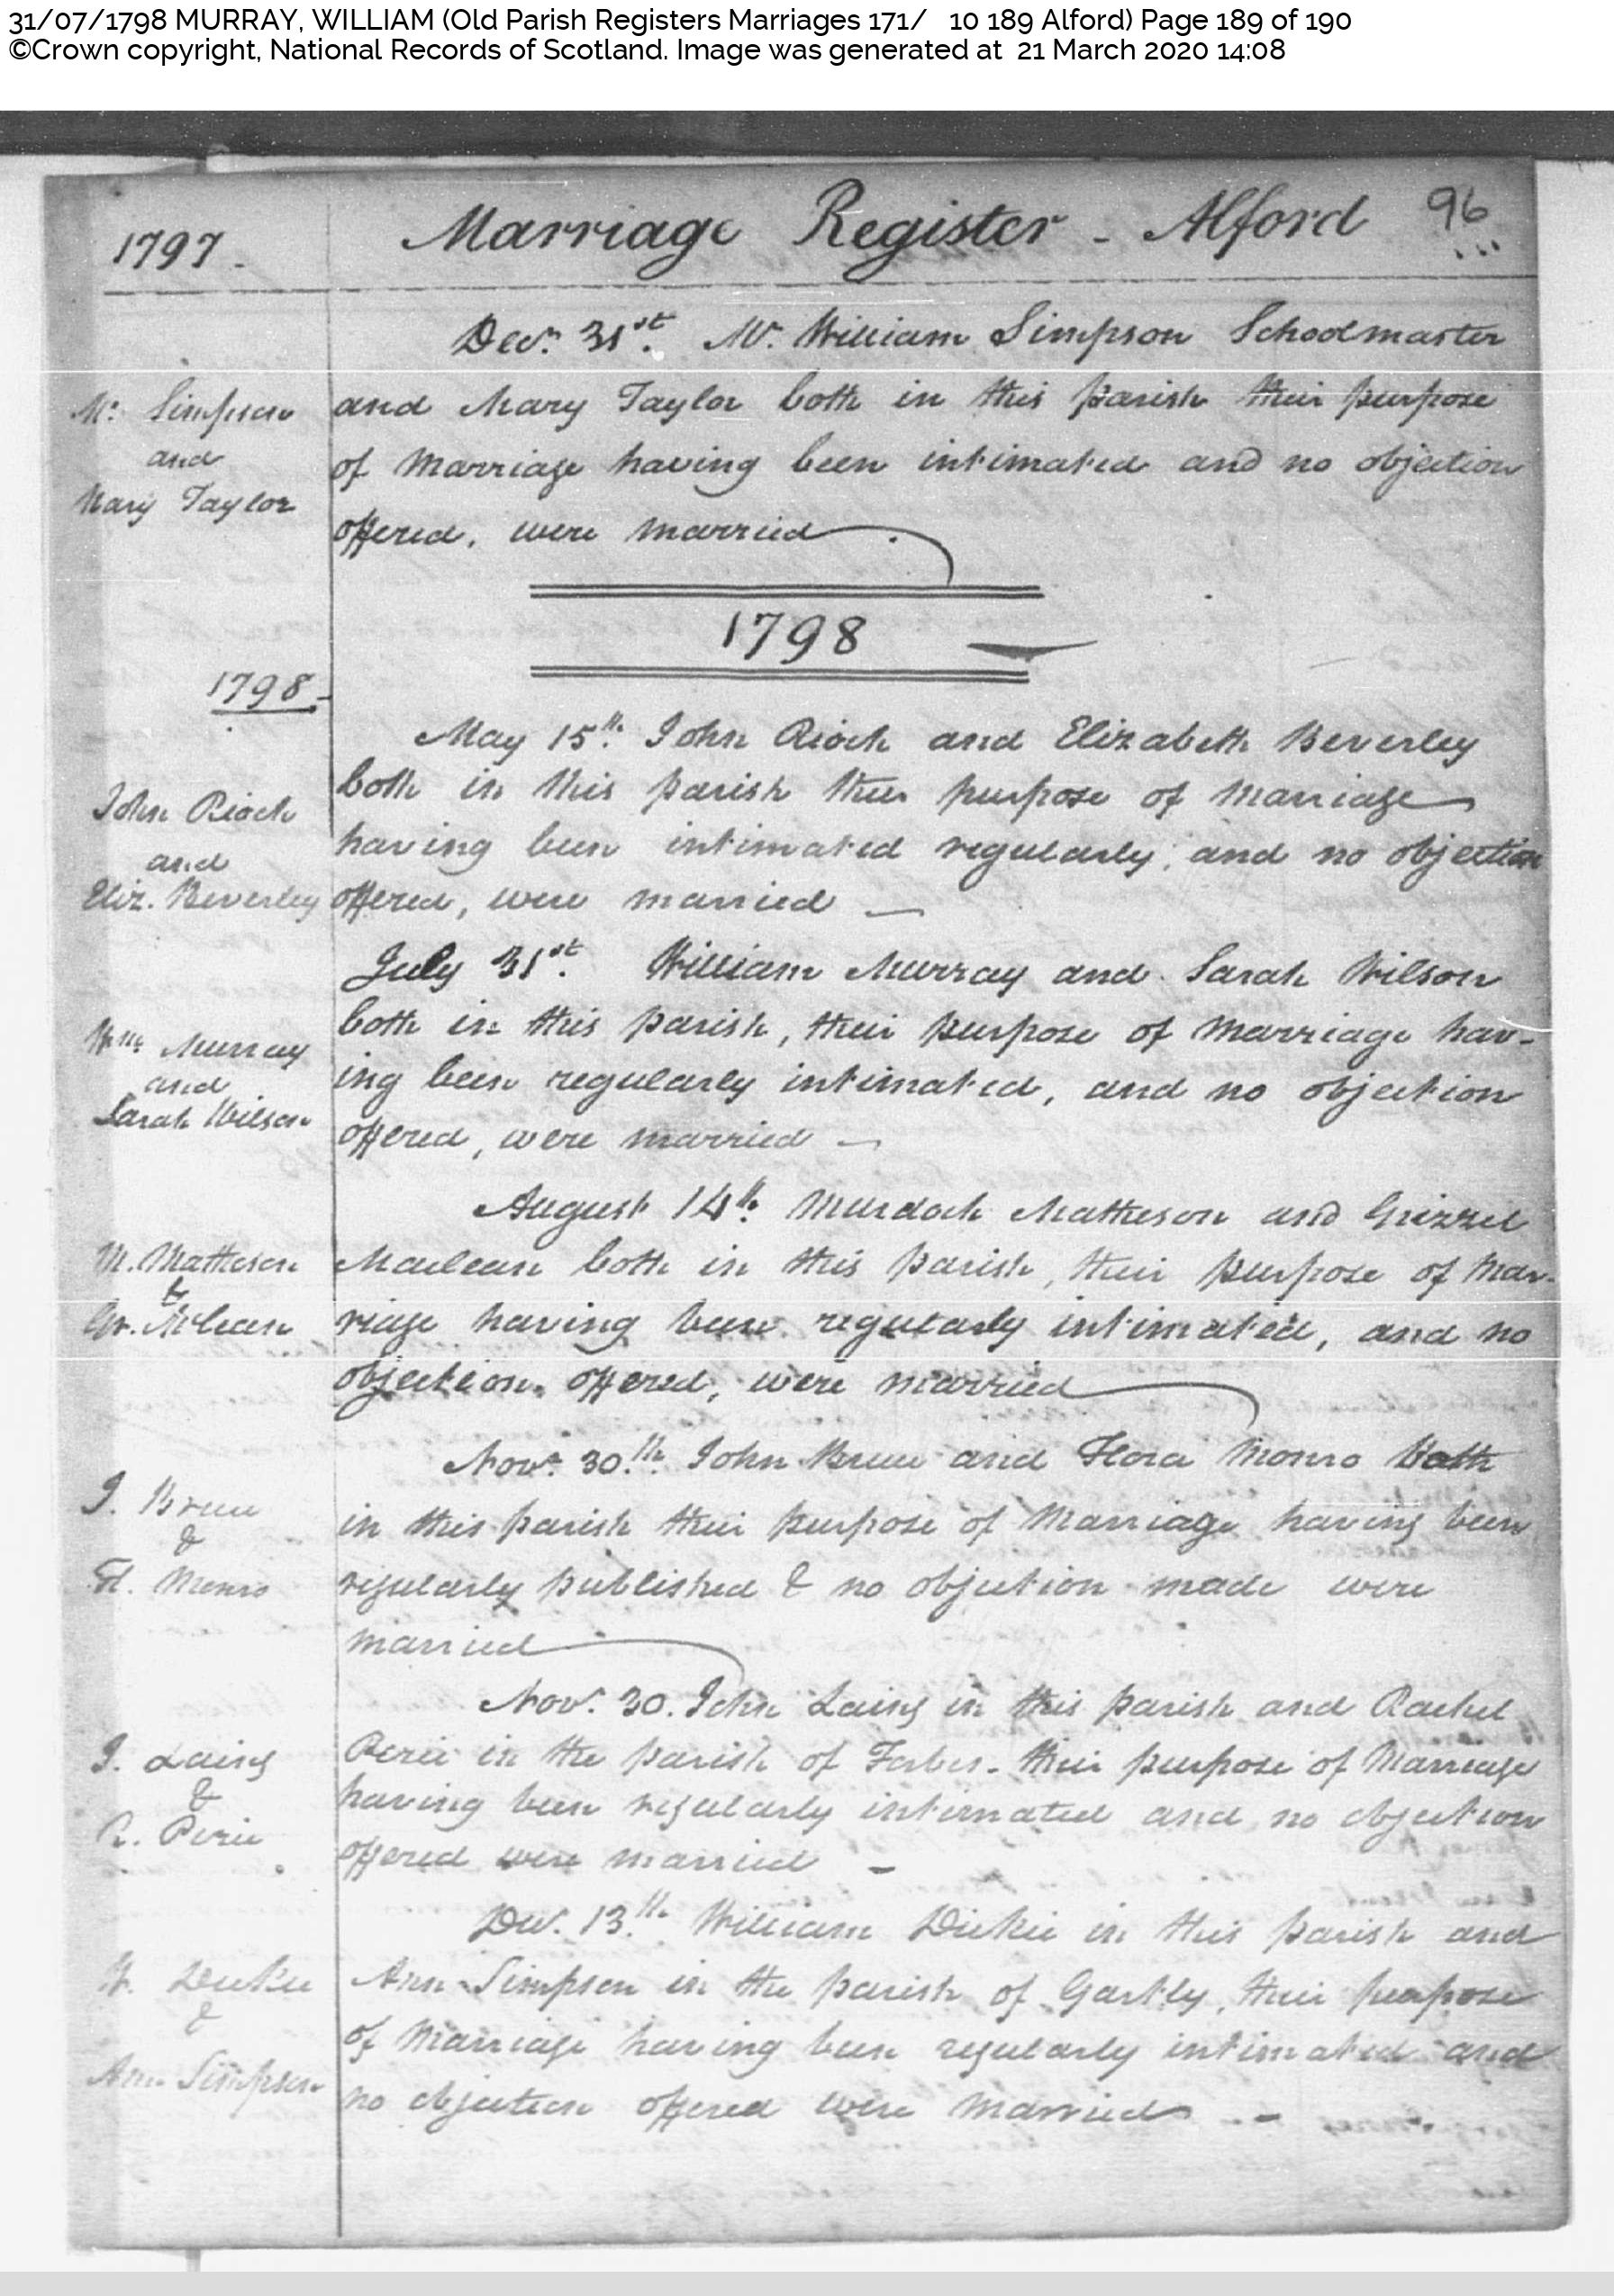 31/07/1798 MURRAY, WILLIAM (Old Parish Registers Marriages 171/ 10 189 Alford) Page 189 of 190
©Crown copyright, National Records of Scotland. Image was generated at 21 March 2020 14:08
1797. Marriage Register - Alford 96
Decr. 31st. Mr. William Simpson Schoolmaster
Mr. Simpson
and
Mary Taylor
and Mary Taylor both in this parish their purpose
of Marriage having been intimated and no objection
offered, were married
1798
1798
May 15th. John Rioch and Elizabeth Beverley
John Rioch
and
Eliz. Beverley
both in this parish their purpose of Marriage
having been intimated regularly, and no objection
offered, were married
July 31st. William Murray and Sarah Wilson
Wm. Murray
and
Sarah Wilson
both in this parish, their purpose of Marriage hav-
ing been regularly intimated, and no objection
offered, were married
August 14th. Murdoch Matheson and Grizzel
M. Matheson
&
Gr. McLean
Maclean both in this parish, their purpose of Mar-
riage having been regularly intimated, and no
objection offered, were married
Novr. 30th. John Bruce and Flora Monro Both
J. Bruce
&
Fl. Monro
in this parish their purpose of Marriage having been
regularly published & no objection made were
married
Novr. 30. John Laing in this parish and Rachel
J. Laing
&
R. Pirie
Pirie in the parish of Forbes. their purpose of Marriage
having been regularly intimated and no objection
offered were married
Dec. 13th. William Dickie in this parish and
W. Dickie
&
Ann Simpson
Ann Simpson in the parish of Gartly, their purpose
of Marriage having been regularly intimated and
no objection offered were married